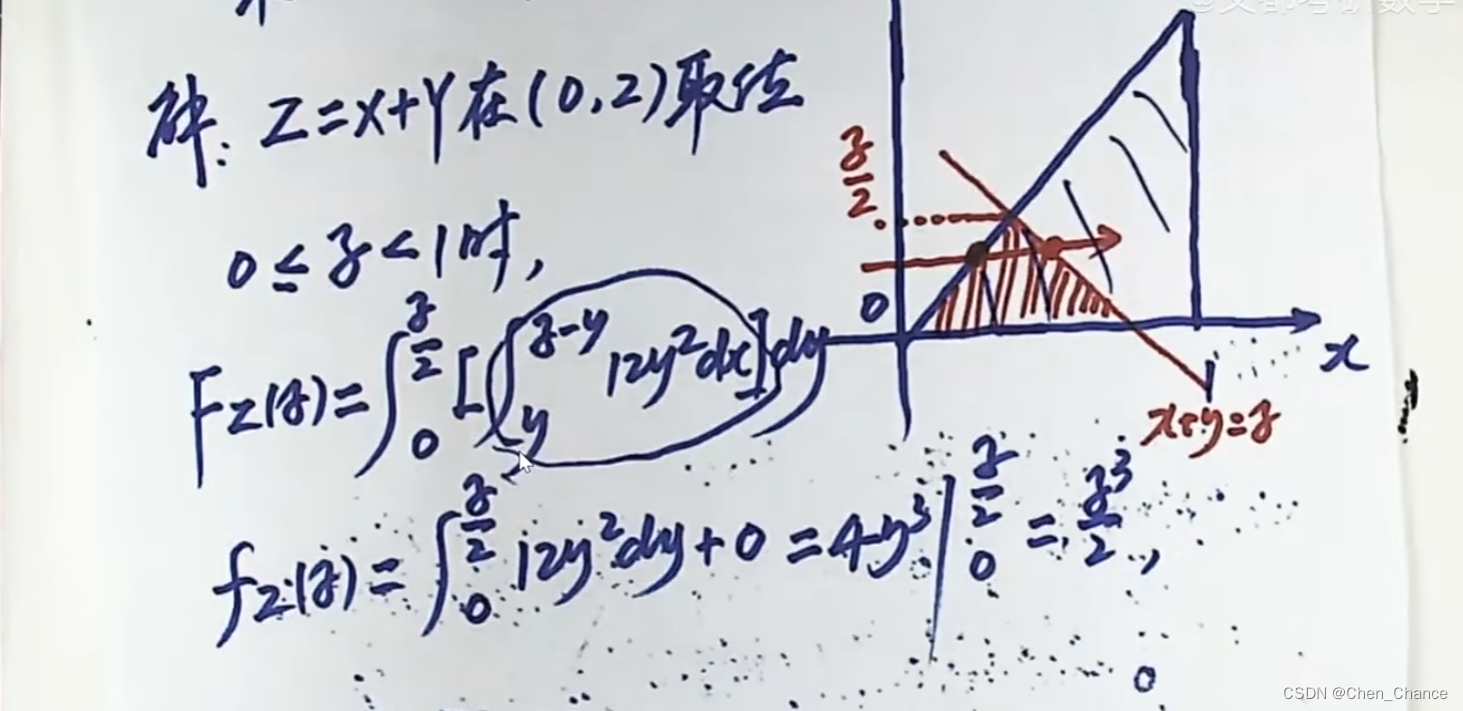 @文都考研数学
解: Z=X+Y在(0,2)取值
0≤z<1时,
F_Z(z)=∫_0^{z/2}[∫_y^{z-y} 12y²dx]dy
f_Z(z)=∫_0^{z/2} 12y²dy+0=4y³|_0^{z/2}=z³/2,
z/2
0
1
x
x+y=z
0
CSDN @Chen_Chance